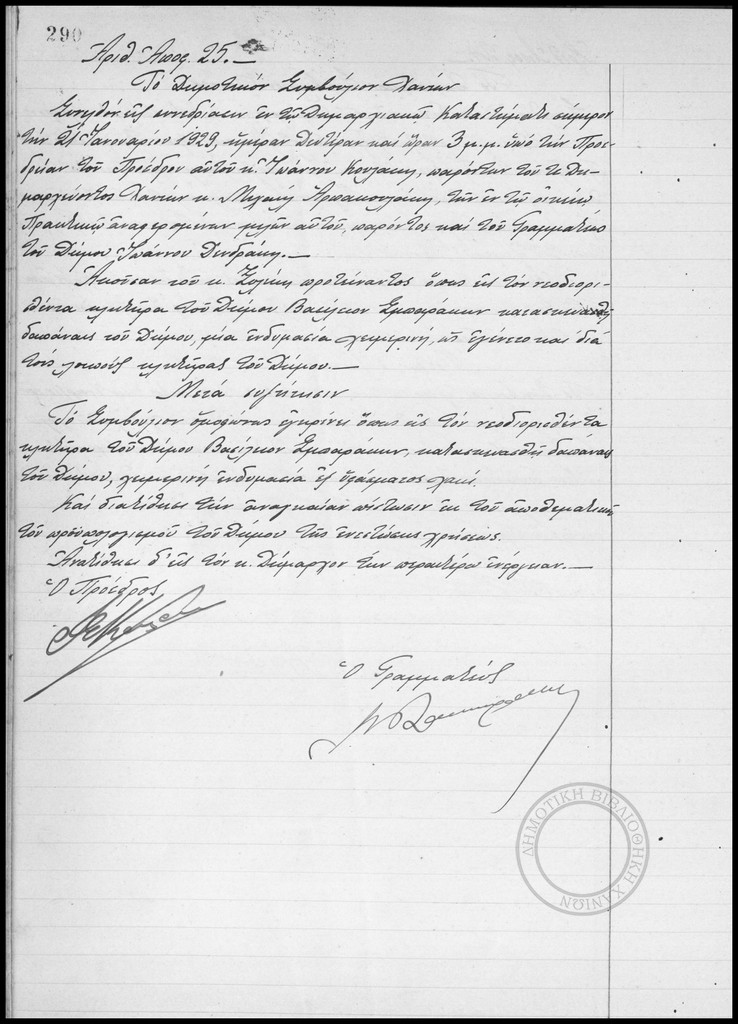 290
Ἀριθ. Ἀποφ. 25.—
Τό Δημοτικόν Συμβούλιον Χανίων
Συνελθόν εἰς συνεδρίασιν ἐν τῷ Δημαρχιακῷ Καταστήματι σήμερον
τήν 21 Ἰανουαρίου 1929, ἡμέραν Δευτέραν καί ὥραν 3 μ.μ. ὑπό τήν Προε-
δρείαν τοῦ Προέδρου αὐτοῦ κ. Ἰωάννου Κουλάκη, παρόντων τοῦ κ. Δη-
μαρχεύοντος Χανίων κ. Μιχαήλ, τῶν ἐν τῷ οἰκείῳ
Πρακτικῷ ἀναφερομένων μελῶν αὐτοῦ, παρόντος καί τοῦ Γραμματέως
τοῦ Δήμου Ἰωάννου Δενδράκη.—
Ἀκοῦσαν τοῦ κ. προτείναντος ὅπως εἰς τόν νεοδιορι-
σθέντα κλητῆρα τοῦ Δήμου Βασίλειον Σμπαράκην κατασκευασθῇ
δαπάναις τοῦ Δήμου, μία ἐνδυμασία χειμερινή, ὡς ἐγένετο καί διά
τούς λοιπούς κλητῆρας τοῦ Δήμου.—
Μετά συζήτησιν
Τό Συμβούλιον ὁμοφώνως ἐγκρίνει ὅπως εἰς τόν νεοδιορισθέντα
κλητῆρα τοῦ Δήμου Βασίλειον Σμπαράκην, κατασκευασθῇ δαπάναις
τοῦ Δήμου, χειμερινή ἐνδυμασία ἐξ ὑφάσματος χακί.
Καί διατίθησι τήν ἀναγκαίαν πίστωσιν ἐκ τοῦ ἀποθεματικοῦ
τοῦ προϋπολογισμοῦ τοῦ Δήμου τῆς ἐνεστώσης χρήσεως.
Ἀνατίθησι δ' εἰς τόν κ. Δήμαρχον τήν περαιτέρω ἐνέργειαν.—
Ὁ Πρόεδρος
Ὁ Γραμματεύς
ΔΗΜΟΤΙΚΗ ΒΙΒΛΙΟΘΗΚΗ ΧΑΝΙΩΝ